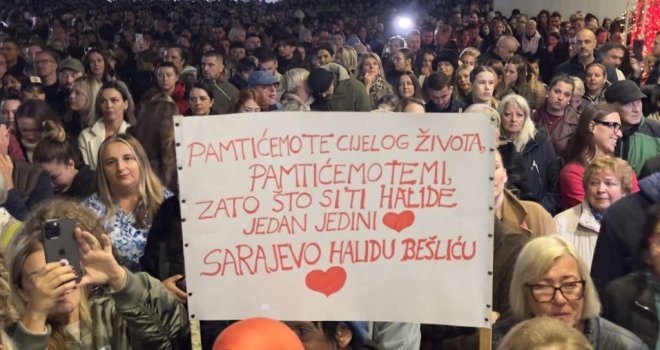 PAMTIĆEMO TE CIJELOG ŽIVOTA,
PAMTIĆEMO TE MI,
ZATO ŠTO SI TI HALIDE
JEDAN JEDINI
SARAJEVO HALIDU BEŠLIĆU